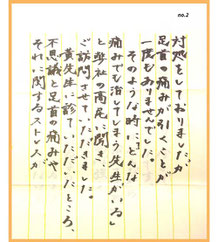 no.2
対処をしておりましたが
足首の痛みが引くことが
一度もありませんでした。
そのような時に「どんな
痛みでも治してしまう先生がいる」
と弊社の高尾に聞き
ご訪問させていただきました。
黄先生に診ていただいたところ、
不思議と足首の痛みや
それに関するストレスが